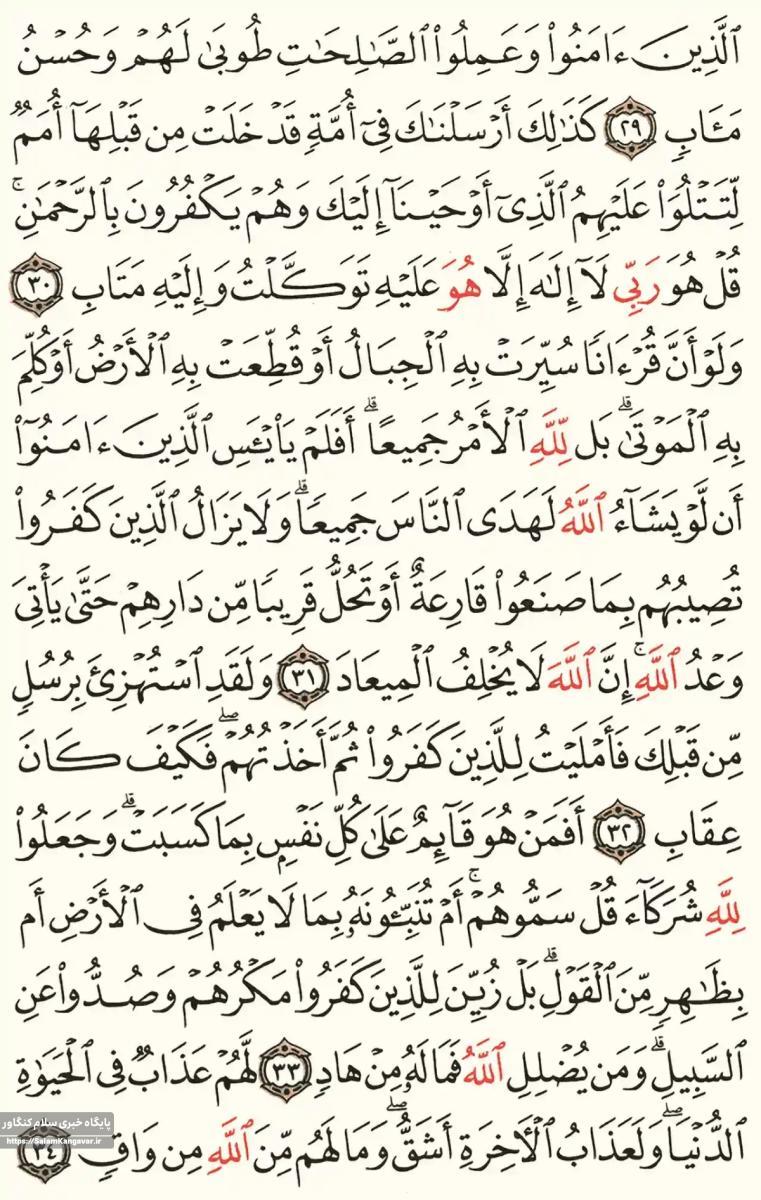 ٱلَّذِينَ ءَامَنُوا۟ وَعَمِلُوا۟ ٱلصَّـٰلِحَـٰتِ طُوبَىٰ لَهُمْ وَحُسْنُ
مَـَٔابٍ ﴿٢٩﴾ كَذَٰلِكَ أَرْسَلْنَـٰكَ فِىٓ أُمَّةٍ قَدْ خَلَتْ مِن قَبْلِهَآ أُمَمٌ
لِّتَتْلُوَا۟ عَلَيْهِمُ ٱلَّذِىٓ أَوْحَيْنَآ إِلَيْكَ وَهُمْ يَكْفُرُونَ بِٱلرَّحْمَـٰنِ ۚ
قُلْ هُوَ رَبِّى لَآ إِلَـٰهَ إِلَّا هُوَ عَلَيْهِ تَوَكَّلْتُ وَإِلَيْهِ مَتَابِ ﴿٣٠﴾
وَلَوْ أَنَّ قُرْءَانًا سُيِّرَتْ بِهِ ٱلْجِبَالُ أَوْ قُطِّعَتْ بِهِ ٱلْأَرْضُ أَوْ كُلِّمَ
بِهِ ٱلْمَوْتَىٰ ۗ بَل لِّلَّهِ ٱلْأَمْرُ جَمِيعًا ۗ أَفَلَمْ يَا۟يْـَٔسِ ٱلَّذِينَ ءَامَنُوٓا۟
أَن لَّوْ يَشَآءُ ٱللَّهُ لَهَدَى ٱلنَّاسَ جَمِيعًا ۗ وَلَا يَزَالُ ٱلَّذِينَ كَفَرُوا۟
تُصِيبُهُم بِمَا صَنَعُوا۟ قَارِعَةٌ أَوْ تَحُلُّ قَرِيبًا مِّن دَارِهِمْ حَتَّىٰ يَأْتِىَ
وَعْدُ ٱللَّهِ ۚ إِنَّ ٱللَّهَ لَا يُخْلِفُ ٱلْمِيعَادَ ﴿٣١﴾ وَلَقَدِ ٱسْتُهْزِئَ بِرُسُلٍ
مِّن قَبْلِكَ فَأَمْلَيْتُ لِلَّذِينَ كَفَرُوا۟ ثُمَّ أَخَذْتُهُمْ ۖ فَكَيْفَ كَانَ
عِقَابِ ﴿٣٢﴾ أَفَمَنْ هُوَ قَآئِمٌ عَلَىٰ كُلِّ نَفْسٍۭ بِمَا كَسَبَتْ ۗ وَجَعَلُوا۟
لِلَّهِ شُرَكَآءَ قُلْ سَمُّوهُمْ ۚ أَمْ تُنَبِّـُٔونَهُۥ بِمَا لَا يَعْلَمُ فِى ٱلْأَرْضِ أَم
بِظَـٰهِرٍ مِّنَ ٱلْقَوْلِ ۗ بَلْ زُيِّنَ لِلَّذِينَ كَفَرُوا۟ مَكْرُهُمْ وَصُدُّوا۟ عَنِ
ٱلسَّبِيلِ ۗ وَمَن يُضْلِلِ ٱللَّهُ فَمَا لَهُۥ مِنْ هَادٍ ﴿٣٣﴾ لَّهُمْ عَذَابٌ فِى ٱلْحَيَوٰةِ
ٱلدُّنْيَا ۖ وَلَعَذَابُ ٱلْـَٔاخِرَةِ أَشَقُّ ۖ وَمَا لَهُم مِّنَ ٱللَّهِ مِن وَاقٍ ﴿٣٤﴾
پایگاه خبری سلام کنگاور
https://SalamKangavar.ir